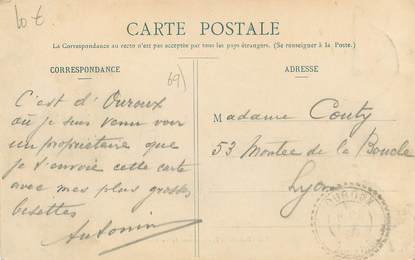 CARTE POSTALE
La Correspondance au recto n'est pas acceptée par tous les pays étrangers. (Se renseigner à la Poste.)
CORRESPONDANCE
69)
C'est d'Ouroux
où je suis venu voir
un propriétaire que
je t'envoie cette carte
avec mes plus grosses
bisettes
Antonin
ADRESSE
Madame Couty
53 Montée de la Boucle
Lyon
OUROUX